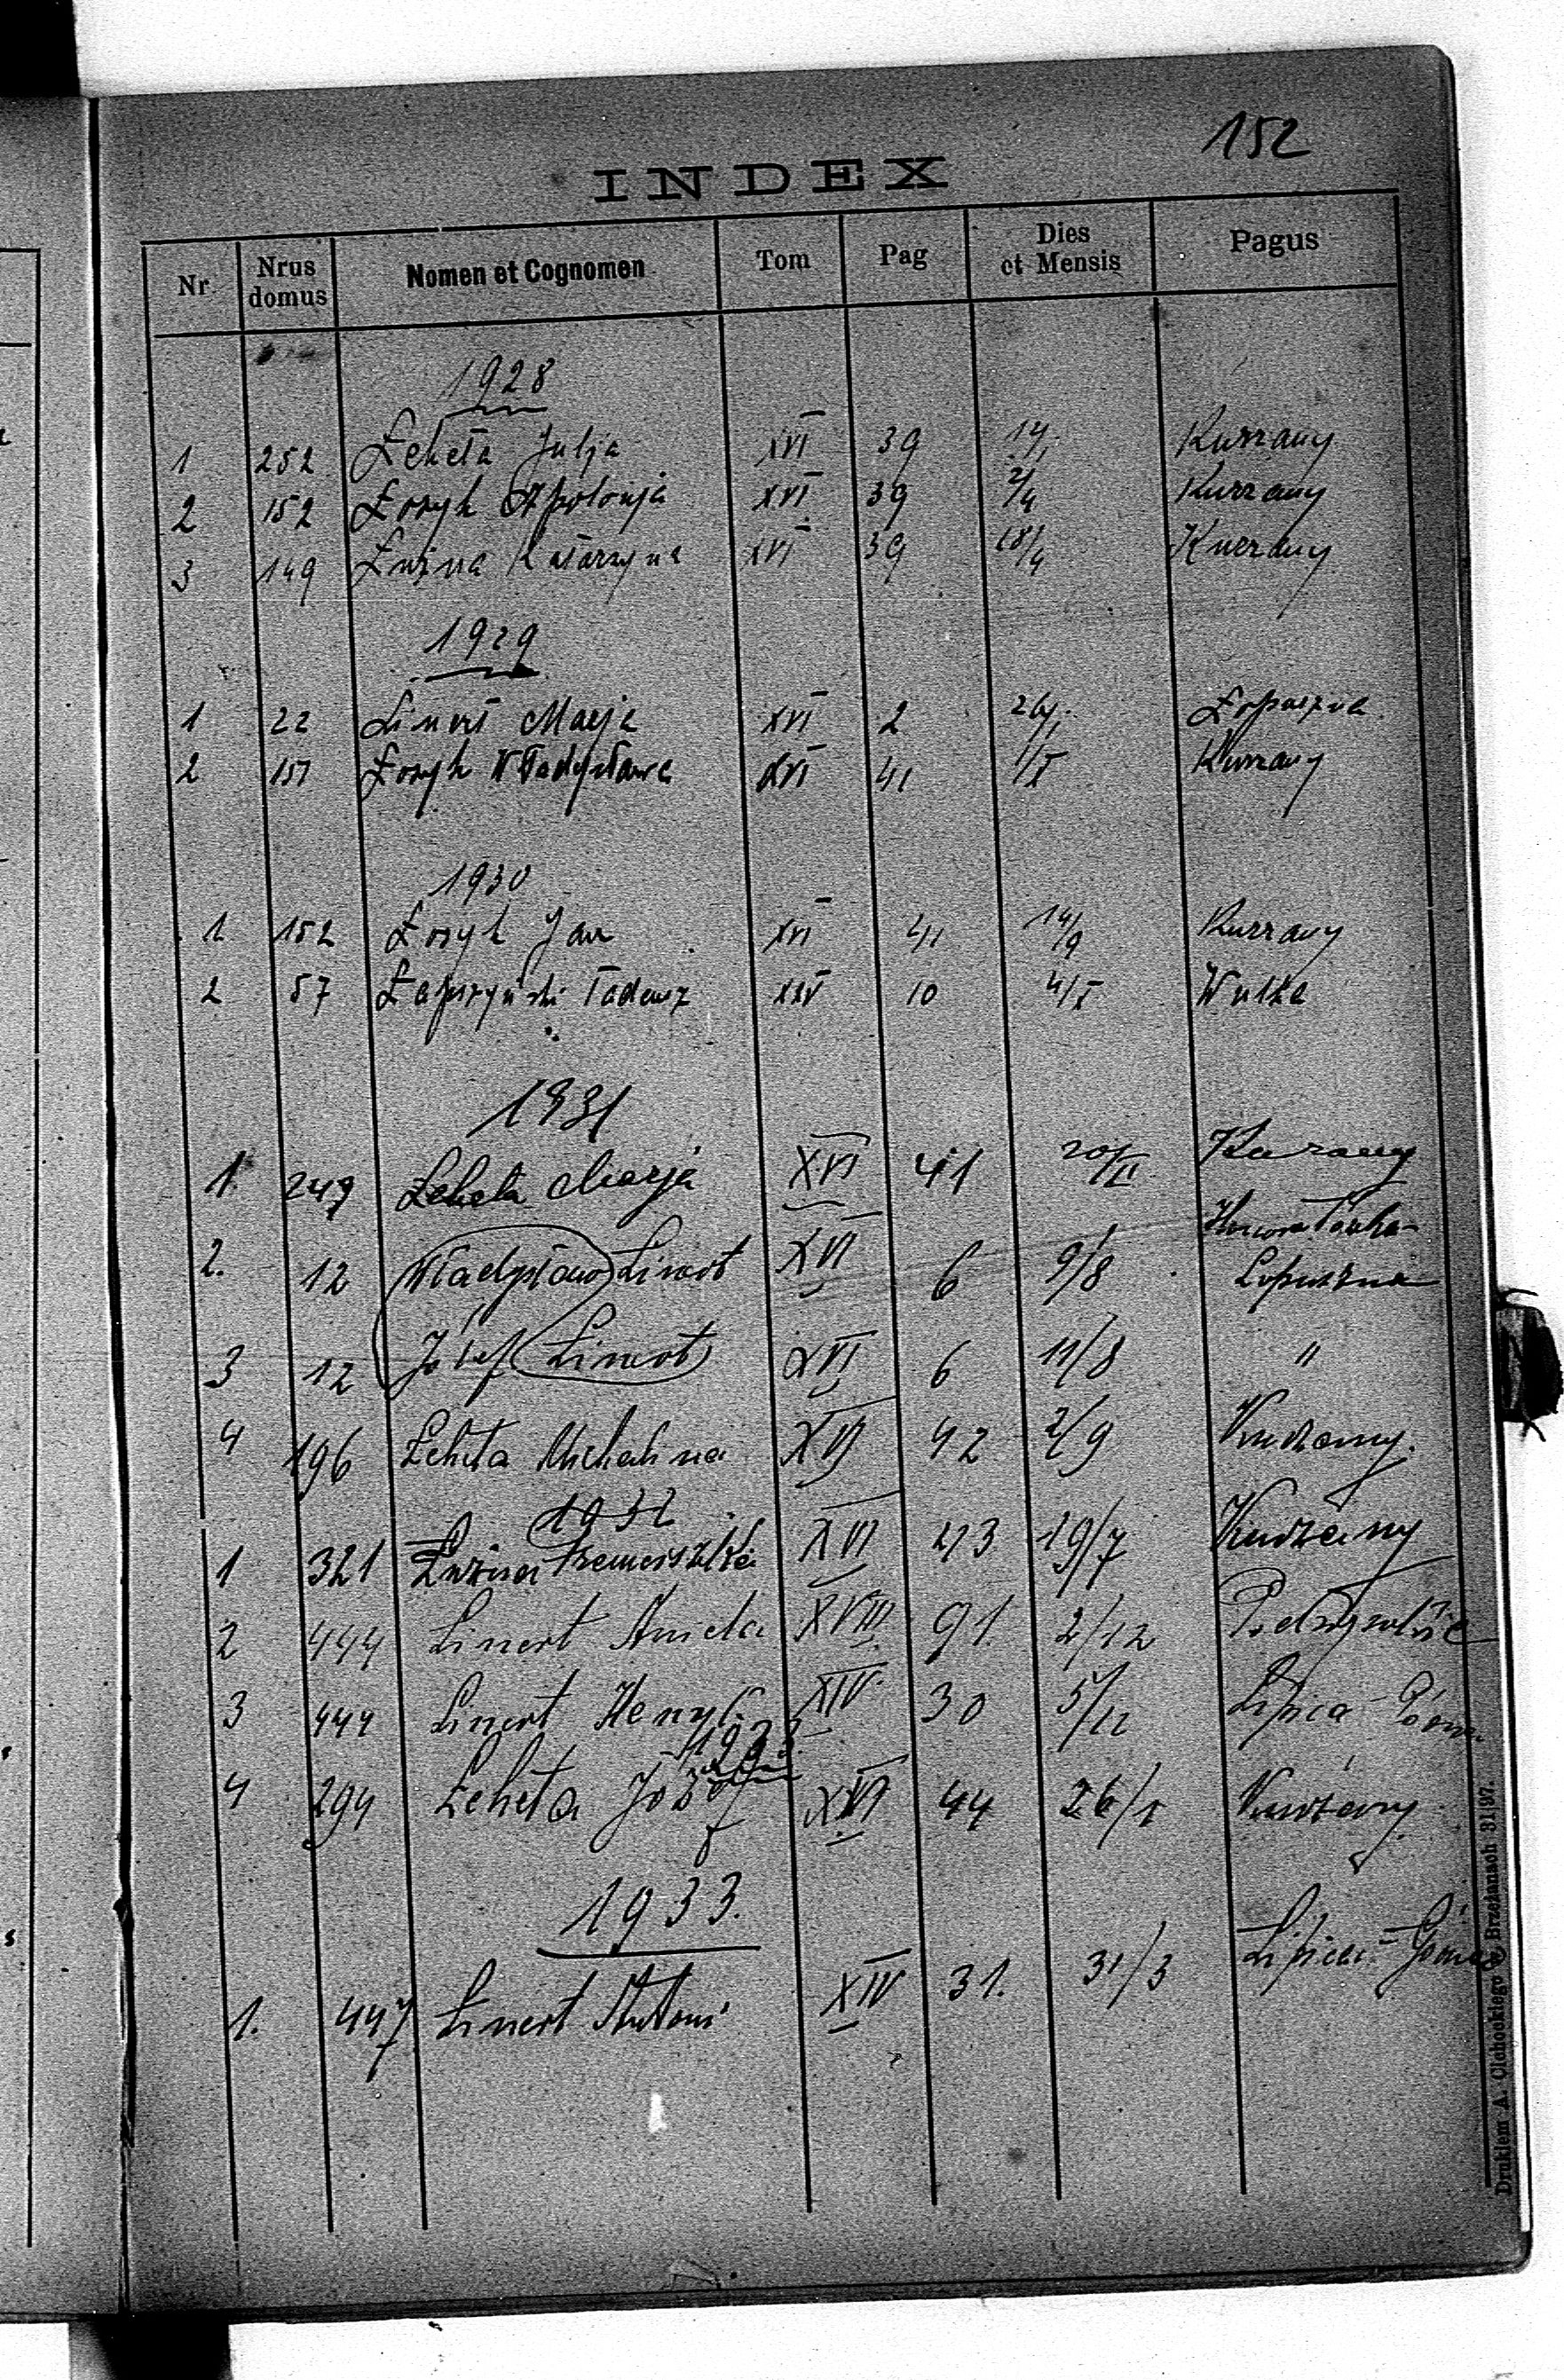 152
INDEX
Nr Nrus domus Nomen et Cognomen Tom Pag Dies et Mensis Pagus
1928
1 252 Łeheta Julja XVI 39 Kurzany
2 152 Łosyk Apolonja XVI 39 2/4 Kurzany
3 149 Łuzna Katarzyna XVI 39 18/4 Kurzany
1929
1 22 Linert Marja XVI 2 Łopuszna
2 151 Łosyk Władysława XVI 41 1/I Kurzany
1930
1 152 Łosyk Jan XVI 41 14/9 Kurzany
2 57 Łapszyński Tadeusz XXV 10 4/I Wulka
1931
1 249 Łeheta Marja XVI 41 20/II Kurzany
2. 12 Władysław Linert XVI 6 9/8 Łopuszna
3 12 Józef Linert XVI 6 11/8 "
4 196 Łeheta Michalina XVI 42 2/9 Kurzany.
1932
1 321 Łuzna Franciszka XVI 43 19/7 Kurzany
2 444 Linert Aniela XVIII 91. 2/12
3 444 Linert Henryk XIV 30 5/12 Lipica Górna
1933
4 294 Łeheta Józef XVI 44 26/1 Kurzany
1933.
1. 447 Linert Antoni XIV 31. 31/3 Lipica-Górna
Drukiem A. Cichockiego w Brzeżanach 31|97.